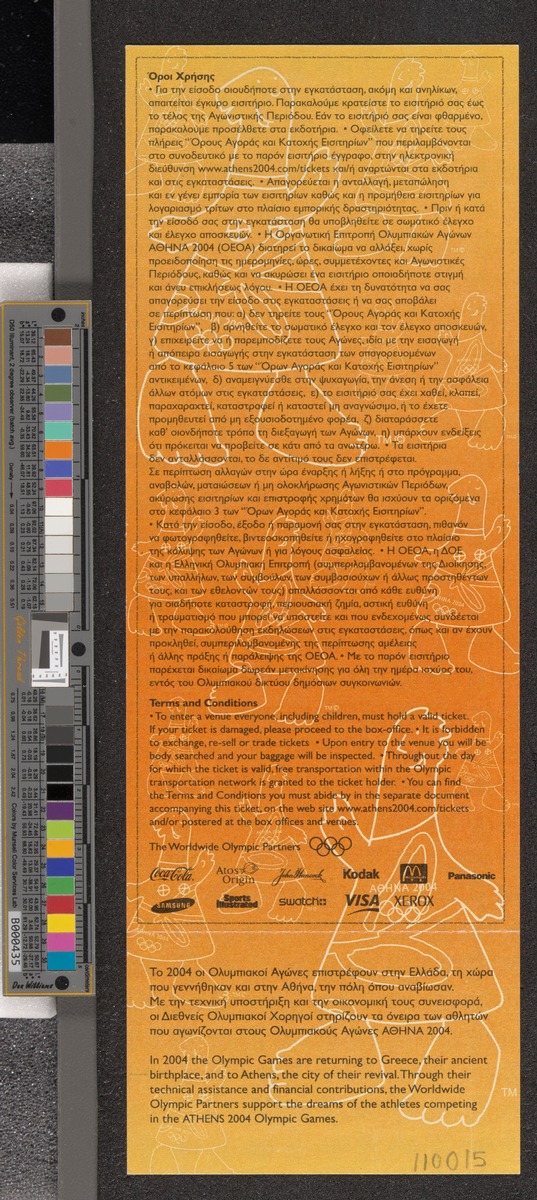 Όροι Χρήσης
• Για την είσοδο οιουδήποτε στην εγκατάσταση, ακόμη και ανηλίκων,
απαιτείται έγκυρο εισιτήριο. Παρακαλούμε κρατείστε το εισιτήριό σας έως
το τέλος της Αγωνιστικής Περιόδου. Εάν το εισιτήριό σας είναι φθαρμένο,
παρακαλούμε προσέλθετε στα εκδοτήρια. • Οφείλετε να τηρείτε τους
πλήρεις "Όρους Αγοράς και Κατοχής Εισιτηρίων" που περιλαμβάνονται
στο συνοδευτικό με το παρόν εισιτήριο έγγραφο, στην ηλεκτρονική
διεύθυνση www.athens2004.com/tickets και/ή αναρτώνται στα εκδοτήρια
και στις εγκαταστάσεις. • Απαγορεύεται η ανταλλαγή, μεταπώληση
και εν γένει εμπορία των εισιτηρίων καθώς και η προμήθεια εισιτηρίων για
λογαριασμό τρίτων στο πλαίσιο εμπορικής δραστηριότητας. • Πριν ή κατά
την είσοδό σας στην εγκατάσταση θα υποβληθείτε σε σωματικό έλεγχο
και έλεγχο αποσκευών. • Η Οργανωτική Επιτροπή Ολυμπιακών Αγώνων
ΑΘΗΝΑ 2004 (ΟΕΟΑ) διατηρεί το δικαίωμα να αλλάξει, χωρίς
προειδοποίηση τις ημερομηνίες, ώρες, συμμετέχοντες και Αγωνιστικές
Περιόδους, καθώς και να ακυρώσει ένα εισιτήριο οποιαδήποτε στιγμή
και άνευ επικλήσεως λόγου. • Η ΟΕΟΑ έχει τη δυνατότητα να σας
απαγορεύσει την είσοδο στις εγκαταστάσεις ή να σας αποβάλει
σε περίπτωση που: α) δεν τηρείτε τους "Όρους Αγοράς και Κατοχής
Εισιτηρίων", β) αρνηθείτε το σωματικό έλεγχο και τον έλεγχο αποσκευών,
γ) επιχειρείτε να ή παρεμποδίζετε τους Αγώνες, ιδία με την εισαγωγή
ή απόπειρα εισαγωγής στην εγκατάσταση των απαγορευομένων
από το κεφάλαιο 5 των "Όρων Αγοράς και Κατοχής Εισιτηρίων"
αντικειμένων, δ) αναμειγνύεσθε στην ψυχαγωγία, την άνεση ή την ασφάλεια
άλλων ατόμων στις εγκαταστάσεις, ε) το εισιτήριό σας έχει χαθεί, κλαπεί,
παραχαρακτεί, καταστραφεί ή καταστεί μη αναγνώσιμο, ή το έχετε
προμηθευτεί από μη εξουσιοδοτημένο φορέα, ζ) διαταράσσετε
καθ' οιονδήποτε τρόπο τη διεξαγωγή των Αγώνων, η) υπάρχουν ενδείξεις
ότι πρόκειται να προβείτε σε κάτι από τα ανωτέρω. • Τα εισιτήρια
δεν ανταλλάσσονται, το δε αντίτιμό τους δεν επιστρέφεται.
Σε περίπτωση αλλαγών στην ώρα έναρξης ή λήξης ή στο πρόγραμμα,
αναβολών, ματαιώσεων ή μη ολοκλήρωσης Αγωνιστικών Περιόδων,
ακύρωσης εισιτηρίων και επιστροφής χρημάτων θα ισχύουν τα οριζόμενα
στο κεφάλαιο 3 των "Όρων Αγοράς και Κατοχής Εισιτηρίων".
• Κατά την είσοδο, έξοδο ή παραμονή σας στην εγκατάσταση, πιθανόν
να φωτογραφηθείτε, βιντεοσκοπηθείτε ή ηχογραφηθείτε στο πλαίσιο
της κάλυψης των Αγώνων ή για λόγους ασφαλείας. • Η ΟΕΟΑ, η ΔΟΕ
και η Ελληνική Ολυμπιακή Επιτροπή (συμπεριλαμβανομένων της Διοίκησης,
των υπαλλήλων, των συμβούλων, των συμβασιούχων ή άλλως προστηθέντων
τους, και των εθελοντών τους) απαλλάσσονται από κάθε ευθύνη
για οιαδήποτε καταστροφή, περιουσιακή ζημία, αστική ευθύνη
ή τραυματισμό που μπορεί να υποστείτε και που ενδεχομένως συνδέεται
με την παρακολούθηση εκδηλώσεων στις εγκαταστάσεις, όπως και αν έχουν
προκληθεί, συμπεριλαμβανομένης της περίπτωσης αμέλειας
ή άλλης πράξης ή παράλειψης της ΟΕΟΑ. • Με το παρόν εισιτήριο
παρέχεται δικαίωμα δωρεάν μετακίνησης για όλη την ημέρα ισχύος του,
εντός του Ολυμπιακού δικτύου δημόσιων συγκοινωνιών.
Terms and Conditions
• To enter a venue everyone, including children, must hold a valid ticket.
If your ticket is damaged, please proceed to the box-office. • It is forbidden
to exchange, re-sell or trade tickets • Upon entry to the venue you will be
body searched and your baggage will be inspected. • Throughout the day
for which the ticket is valid, free transportation within the Olympic
transportation network is granted to the ticket holder. • You can find
the Terms and Conditions you must abide by in the separate document
accompanying this ticket, on the web site www.athens2004.com/tickets
and/or postered at the box offices and venues.
The Worldwide Olympic Partners
Coca-Cola Atos Origin John Hancock Kodak M Panasonic
ΑΘΗΝΑ 2004
SAMSUNG Sports Illustrated swatch VISA XEROX
Το 2004 οι Ολυμπιακοί Αγώνες επιστρέφουν στην Ελλάδα, τη χώρα
που γεννήθηκαν και στην Αθήνα, την πόλη όπου αναβίωσαν.
Με την τεχνική υποστήριξη και την οικονομική τους συνεισφορά,
οι Διεθνείς Ολυμπιακοί Χορηγοί στηρίζουν τα όνειρα των αθλητών
που αγωνίζονται στους Ολυμπιακούς Αγώνες ΑΘΗΝΑ 2004.
In 2004 the Olympic Games are returning to Greece, their ancient
birthplace, and to Athens, the city of their revival. Through their
technical assistance and financial contributions, the Worldwide
Olympic Partners support the dreams of the athletes competing
in the ATHENS 2004 Olympic Games.
TM
110015
D50 Illuminant, 2 degree observer
Density
Golden Thread
Colors by Munsell Color Services Lab
B000435
Don Williams